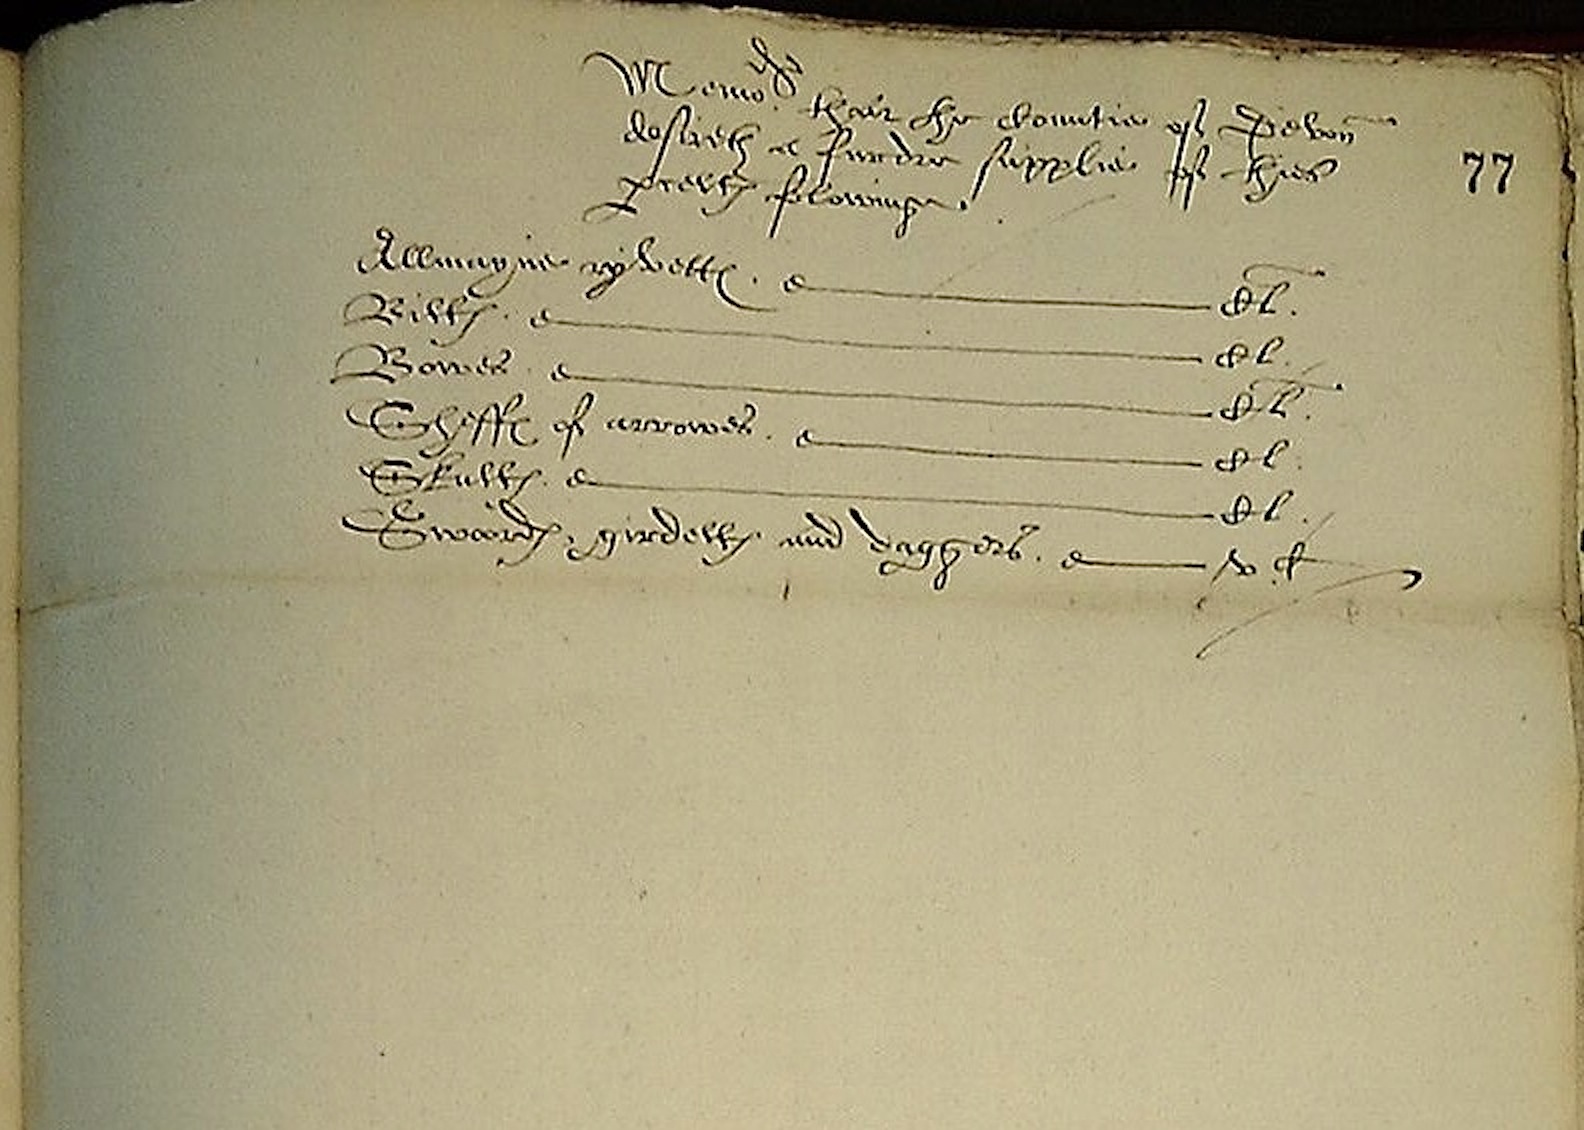 Memo. that the Countie of Devon
desireth a furdre supplie of thies
parcells folowing.
77
Allmayne ryvetts. cl.
Billes. cl.
Bowes. cl.
Sheffes of arrowes. cl.
Skulles. cl.
Swoordes, girdells and daggers.